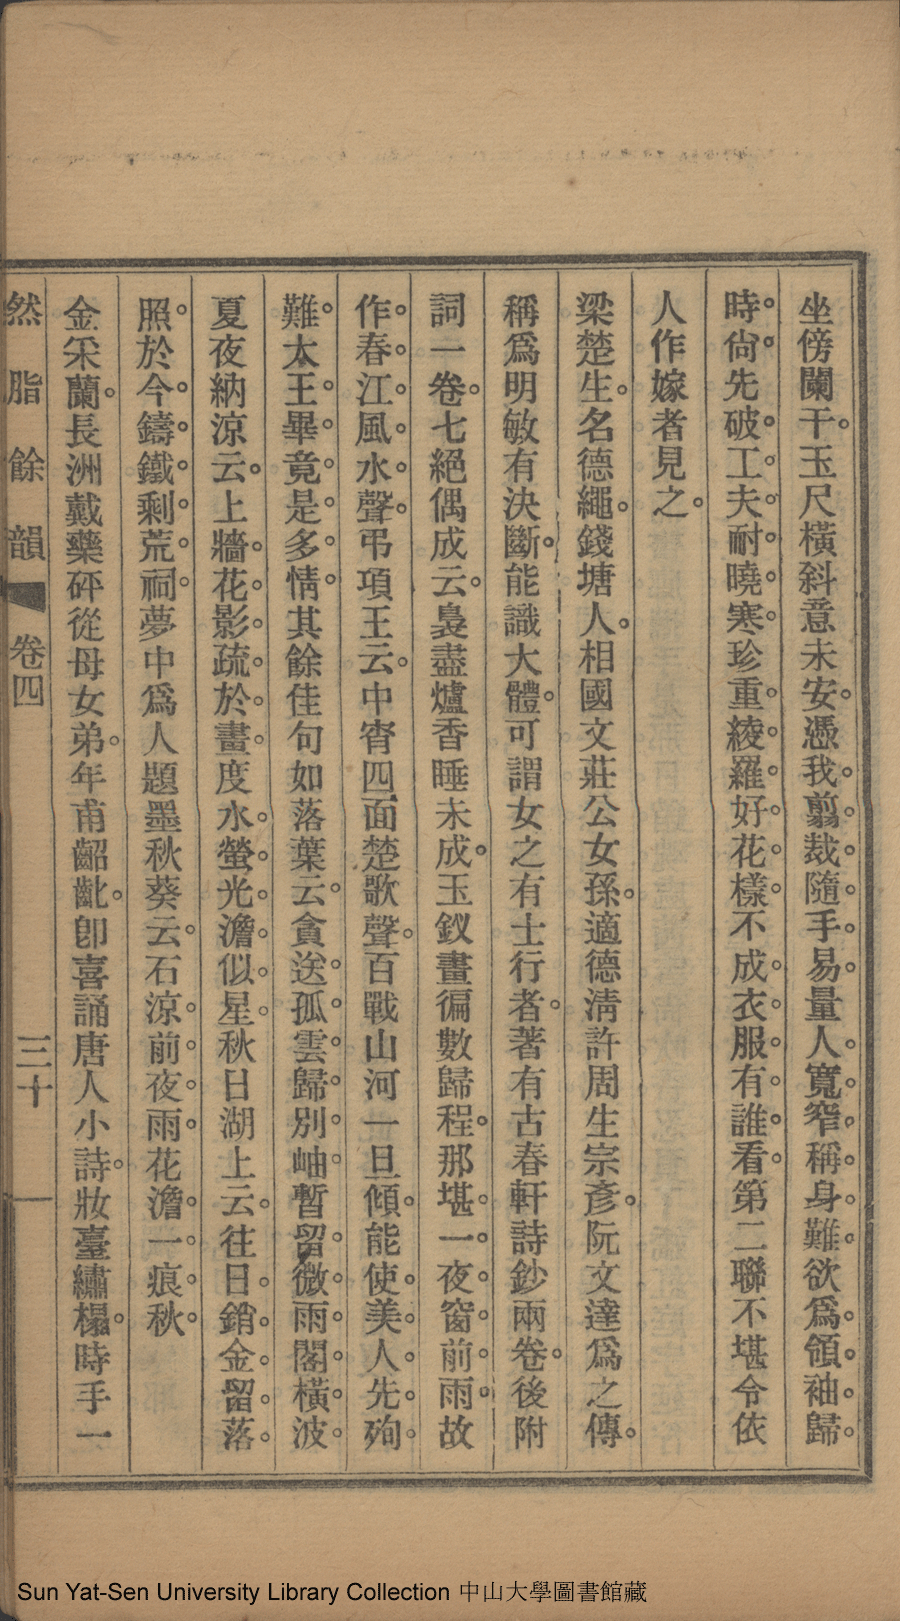 坐傍闌干。玉尺橫斜意未安。憑我翦裁隨手易。量人寬窄稱身難。欲爲領袖歸
時尙先破工夫耐曉寒。珍重綾羅好花樣。不成衣服有誰看。第二聯不堪令依
人作嫁者見之。
梁楚生。名德繩。錢塘人。相國文莊公女孫。適德淸許周生宗彥。阮文達爲之傳。
稱爲明敏有決斷。能識大體。可謂女之有士行者。著有古春軒詩鈔兩卷。後附
詞一卷。七絕偶成云。裊盡爐香睡未成。玉釵畫徧數歸程。那堪一夜窗前雨。故
作春江風水聲。弔項王云。中宵四面楚歌聲。百戰山河一旦傾。能使美人先殉
難。太王畢竟是多情。其餘佳句如落葉云。貪送孤雲歸別岫。暫留微雨閣橫波。
夏夜納涼云。上牆花影疏於畫。度水螢光澹似星。秋日湖上云。往日銷金留落
照。於今鑄鐵剩荒祠。夢中爲人題墨秋葵云。石涼前夜雨。花澹一痕秋。
金采蘭。長洲戴藥砰從母女弟。年甫齠齔。卽喜誦唐人小詩。妝臺繡榻。時手一
然脂餘韻
卷四
三十
Sun Yat-Sen University Library Collection 中山大學圖書館藏